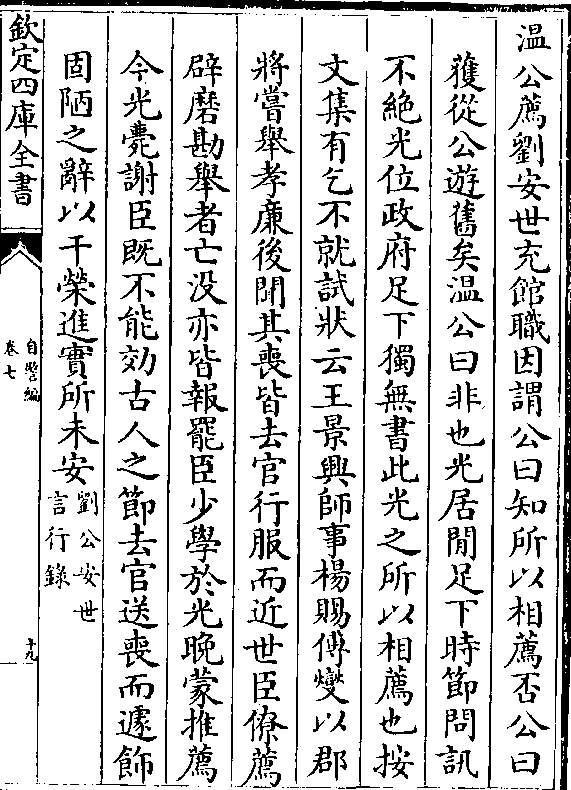 温公薦劉安世充館職因謂公曰知所以相薦否公曰
獲從公遊舊矣温公曰非也光居閒足下時節問訊
不絶光位政府足下獨無書此光之所以相薦也按
文集有乞不就試狀云王景興師事楊賜傅燮以郡
將嘗舉孝廉後聞其喪皆去官行服而近世臣僚薦
辟磨勘舉者亡没亦皆報罷臣少學於光晚蒙推薦
今光薨謝臣既不能効古人之節去官送喪而遽飾
固陋之辭以干榮進實所未安
劉公安世
言行錄
欽定四庫全書
自警編
卷七
十九